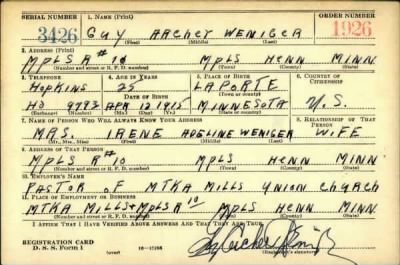 SERIAL NUMBER 1. NAME (Print) ORDER NUMBER
3426 GUY ARCHER WENIGER 1926
(First) (Middle) (Last)
2. ADDRESS (Print)
MPLS R# 10 MPLS HENN MINN
(Number and street or R. F. D. number) (Town) (County) (State)
3. TELEPHONE 4. AGE IN YEARS 5. PLACE OF BIRTH 6. COUNTRY OF CITIZENSHIP
HOPKINS 25 LAPORTE
DATE OF BIRTH
HO 9793 APR 12 1915 MINNESOTA U.S.
(Exchange) (Number) (Mo.) (Day) (Yr.) (State or country)
7. NAME OF PERSON WHO WILL ALWAYS KNOW YOUR ADDRESS 8. RELATIONSHIP OF THAT PERSON
MRS. IRENE ADELINE WENIGER WIFE
(Mr., Mrs., Miss) (First) (Middle) (Last)
9. ADDRESS OF THAT PERSON
MPLS R#10 MPLS HENN MINN
(Number and street or R. F. D. number) (Town) (County) (State)
10. EMPLOYER'S NAME
PASTOR OF MTKA MILLS UNION CHURCH
11. PLACE OF EMPLOYMENT OR BUSINESS
MTKA MILLS + MPLS R 10 MPLS HENN MINN.
(Number and street or R. F. D. number) (Town) (County) (State)
I AFFIRM THAT I HAVE VERIFIED ABOVE ANSWERS AND THAT THEY ARE TRUE.
REGISTRATION CARD
D. S. S. Form 1
(Registrant's signature)